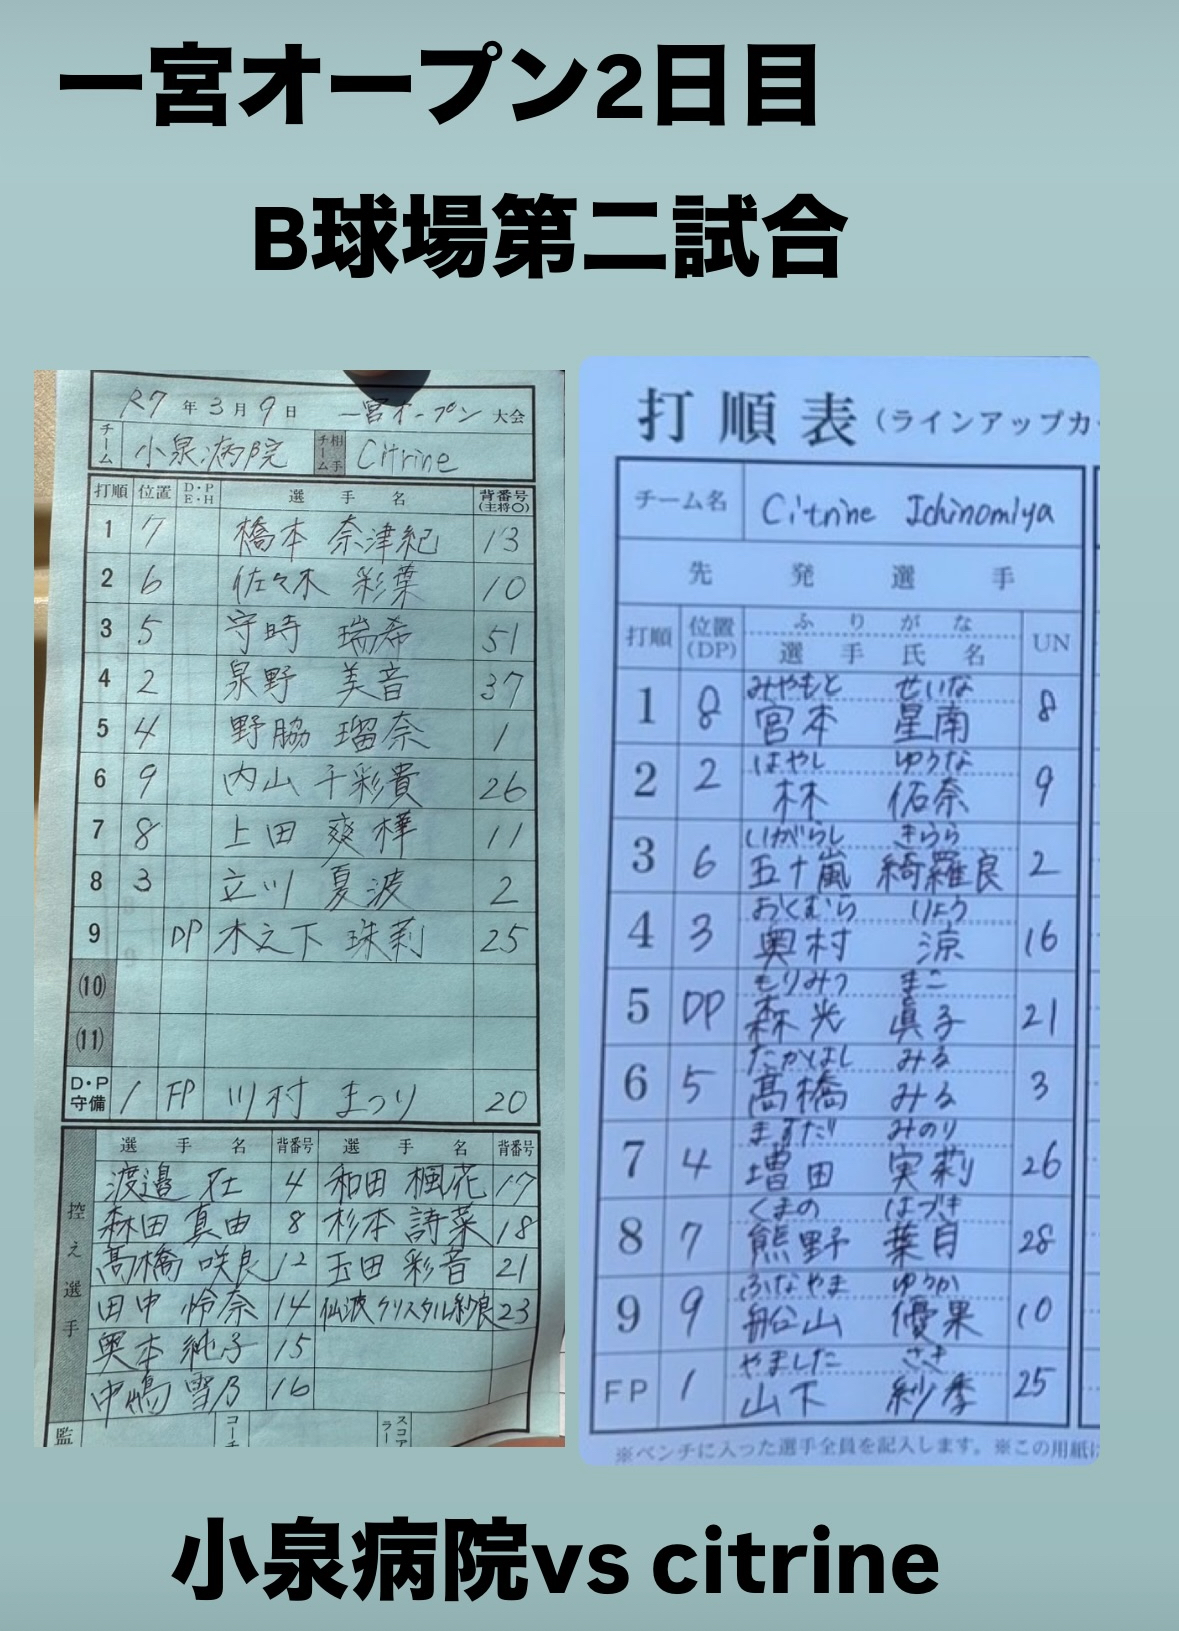 一宮オープン2日目
B球場第二試合
R7年3月9日 一宮オープン大会
チーム 小泉病院 相手チーム Citrine
打順 位置 D・P E・H 選手名 背番号(主将○)
1 7 橋本 奈津紀 13
2 6 佐々木 彩葉 10
3 5 守時 瑞希 51
4 2 泉野 美音 37
5 4 野脇 瑠奈 1
6 9 内山 千彩貴 26
7 8 上田 爽樺 11
8 3 立川 夏波 2
9 DP 木之下 珠莉 25
(10)
(11)
D・P守備 1 FP 川村 まつり 20
控え選手
選手名 背番号 選手名 背番号
渡邉 4 和田 楓花 17
森田 真由 8 杉本 詩菜 18
髙橋 咲良 12 玉田 彩音 21
田中 怜奈 14 仙波クリスタル紗良 23
奥本 純子 15
中嶋 雪乃 16
監 コーチ スコアラー
打順表(ラインアップカ
チーム名 Citrine Ichinomiya
先発選手
打順 位置(DP) ふりがな 選手氏名 UN
みやもと せいな
1 8 宮本 星南 8
はやし ゆうな
2 2 林 佑奈 9
いがらし きらら
3 6 五十嵐 綺羅良 2
おくむら りょう
4 3 奥村 涼 16
もりみつ まこ
5 DP 森光 眞子 21
たかはし みる
6 5 髙橋 みる 3
ますだ みのり
7 4 増田 実莉 26
くまの はづき
8 7 熊野 葉月 28
ふなやま ゆうか
9 9 船山 優果 10
やました さき
FP 1 山下 紗季 25
※ベンチに入った選手全員を記入します。※この用紙は
小泉病院vs citrine